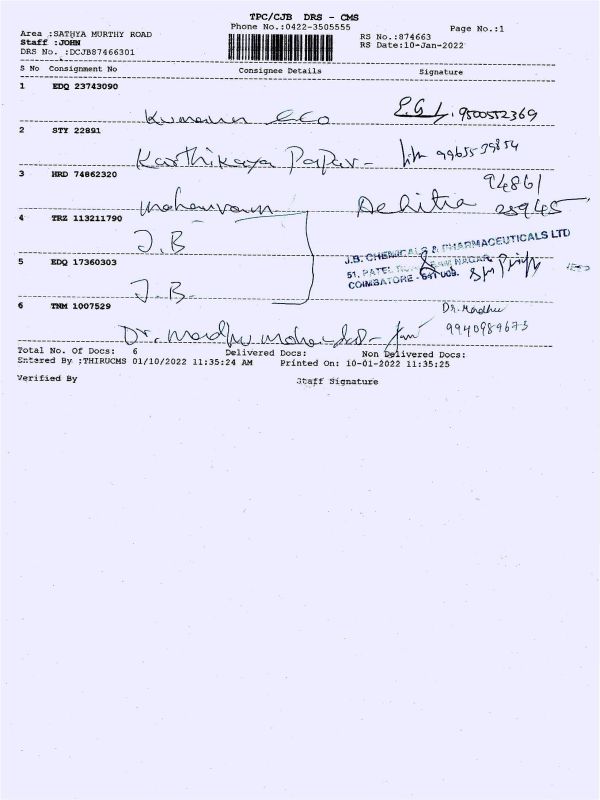 TPC/CJB DRS - CMS
Phone No.:0422-3505555
Page No.:1
Area :SATHYA MURTHY ROAD
Staff :JOHN
DRS No. :DCJB87466301
RS No.:874663
RS Date:10-Jan-2022
S No Consignment No Consignee Details Signature
1 EDQ 23743090
9500552369
2 STY 22891
Karthikaya Papar - 9965539854
3 HRD 74862320
94861
4 TRZ 113211790
J.B
J.B. CHEMICALS & PHARMACEUTICALS LTD
51, PATEL NAGAR,
COIMBATORE - 641 009.
5 EDQ 17360303
J.B.
6 TNM 1007529
Dr. Madhu
Dr. Madhu 9940989673
Total No. Of Docs: 6 Delivered Docs: Non Delivered Docs:
Entered By :THIRUCMS 01/10/2022 11:35:24 AM Printed On: 10-01-2022 11:35:25
Verified By Staff Signature